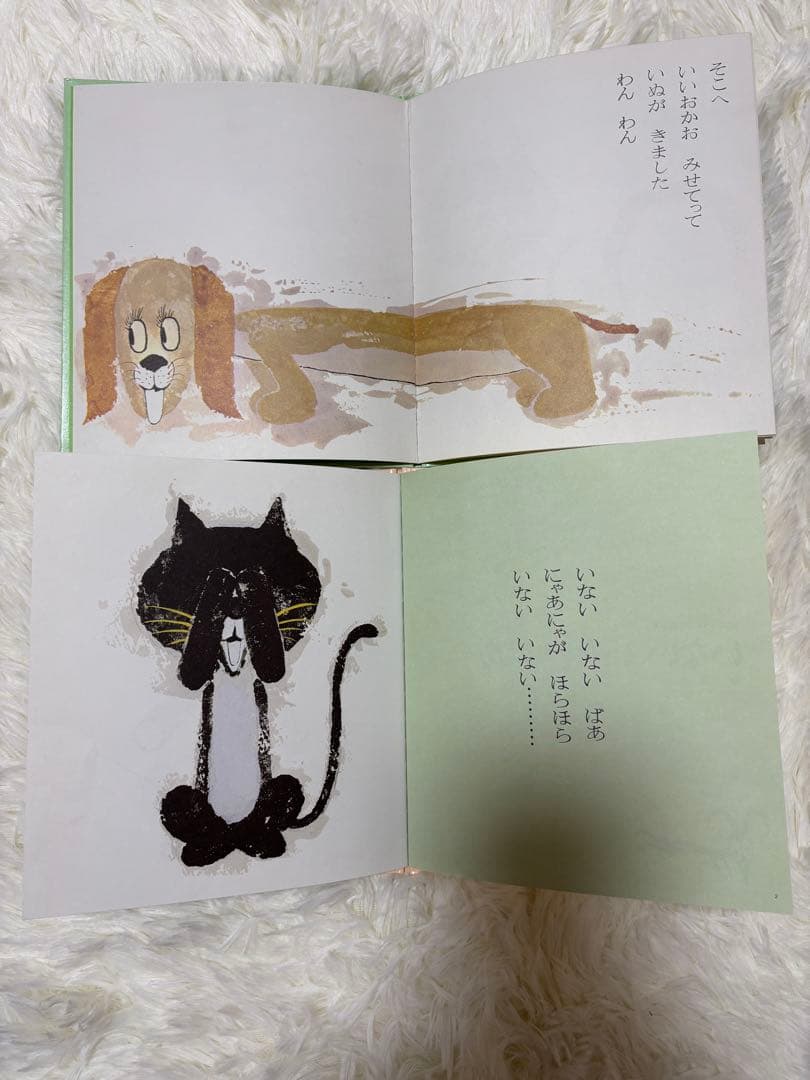 そこへ
いいおかお　みせてって
いぬが　きました
わん　わん
いない　いない　ばあ
にゃあにゃが　ほらほら
いない　いない………
2